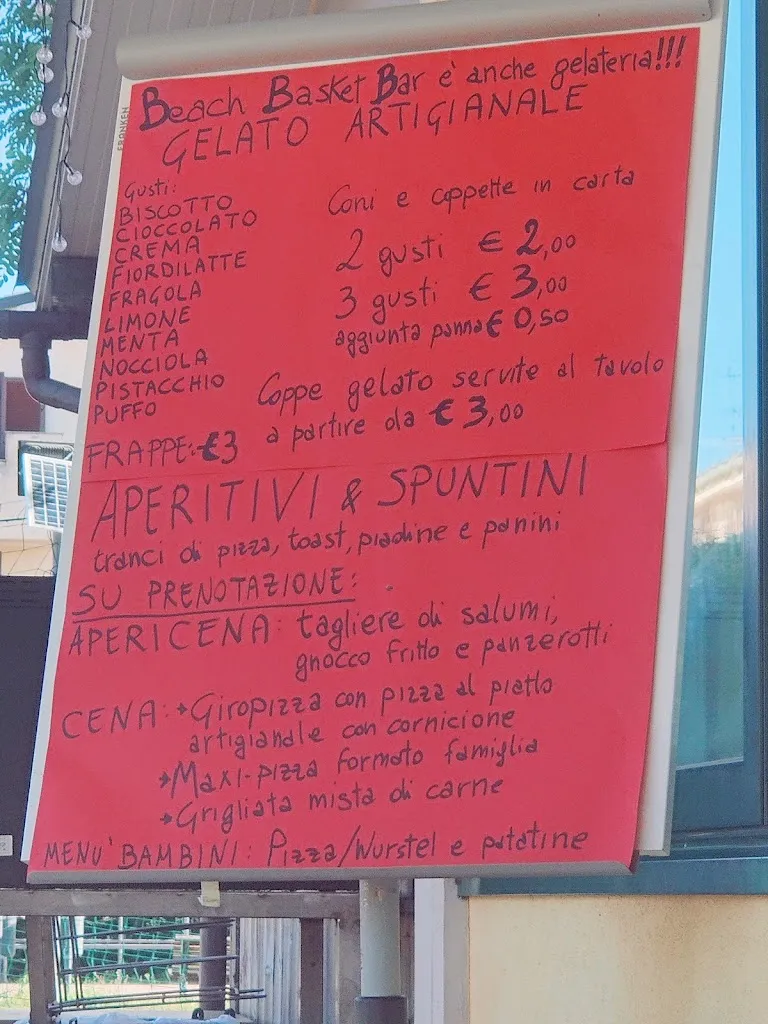 FRANKEN
Beach Basket Bar è anche gelateria!!!
GELATO ARTIGIANALE
Gusti:
BISCOTTO
CIOCCOLATO
CREMA
FIORDILATTE
FRAGOLA
LIMONE
MENTA
NOCCIOLA
PISTACCHIO
PUFFO
FRAPPE: €3
Coni e coppette in carta
2 gusti € 2,00
3 gusti € 3,00
aggiunta panna € 0,50
Coppe gelato servite al tavolo
a partire da € 3,00
APERITIVI & SPUNTINI
tranci di pizza, toast, piadine e panini
SU PRENOTAZIONE:
APERICENA: tagliere di salumi,
gnocco fritto e panzerotti
CENA: → Giropizza con pizza al piatto
artigianale con cornicione
→ Maxi-pizza formato famiglia
→ Grigliata mista di carne
MENU' BAMBINI: Pizza/Wurstel e patatine